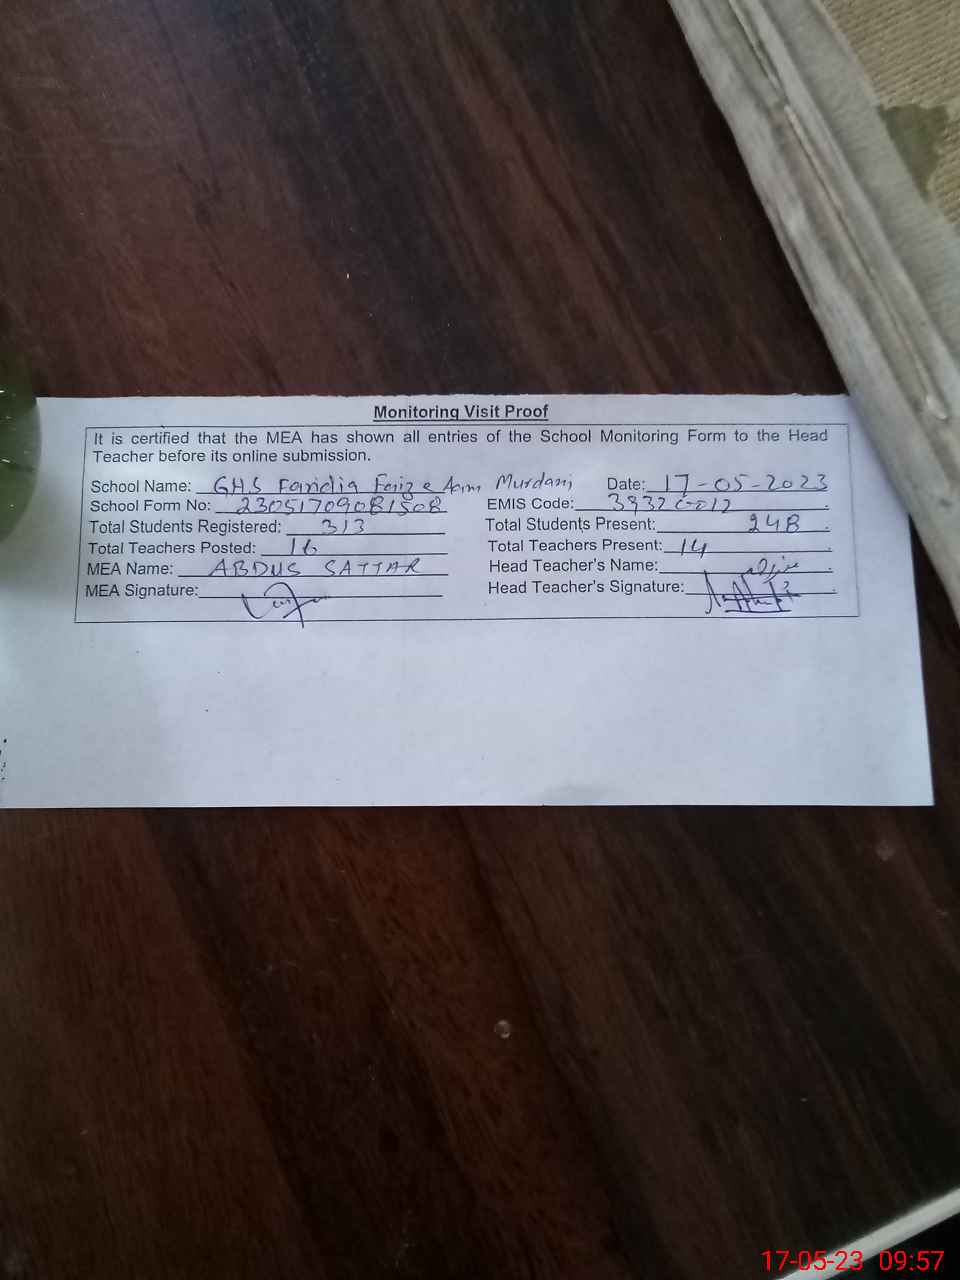 Monitoring Visit Proof
It is certified that the MEA has shown all entries of the School Monitoring Form to the Head
Teacher before its online submission.
School Name: GHS Faridia Faiz e Aam Murdani Date: 17-05-2023
School Form No: 23051709081508 EMIS Code:
Total Students Registered: 313 Total Students Present: 248
Total Teachers Posted: 16 Total Teachers Present: 14
MEA Name: ABDUS SATTAR Head Teacher's Name:
MEA Signature: Head Teacher's Signature:
17-05-23 09:57